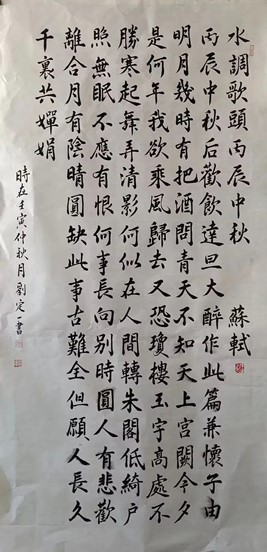 水調歌頭丙辰中秋 蘇軾
丙辰中秋后歡飲達旦大醉作此篇兼懷子由
明月幾時有把酒問青天不知天上宮闕今夕
是何年我欲乘風歸去又恐瓊樓玉宇高處不
勝寒起舞弄清影何似在人間轉朱閣低綺户
照無眠不應有恨何事長向別時圓人有悲歡
離合月有陰晴圓缺此事古難全但願人長久
千裏共嬋娟
時在壬寅仲秋月劉定一書